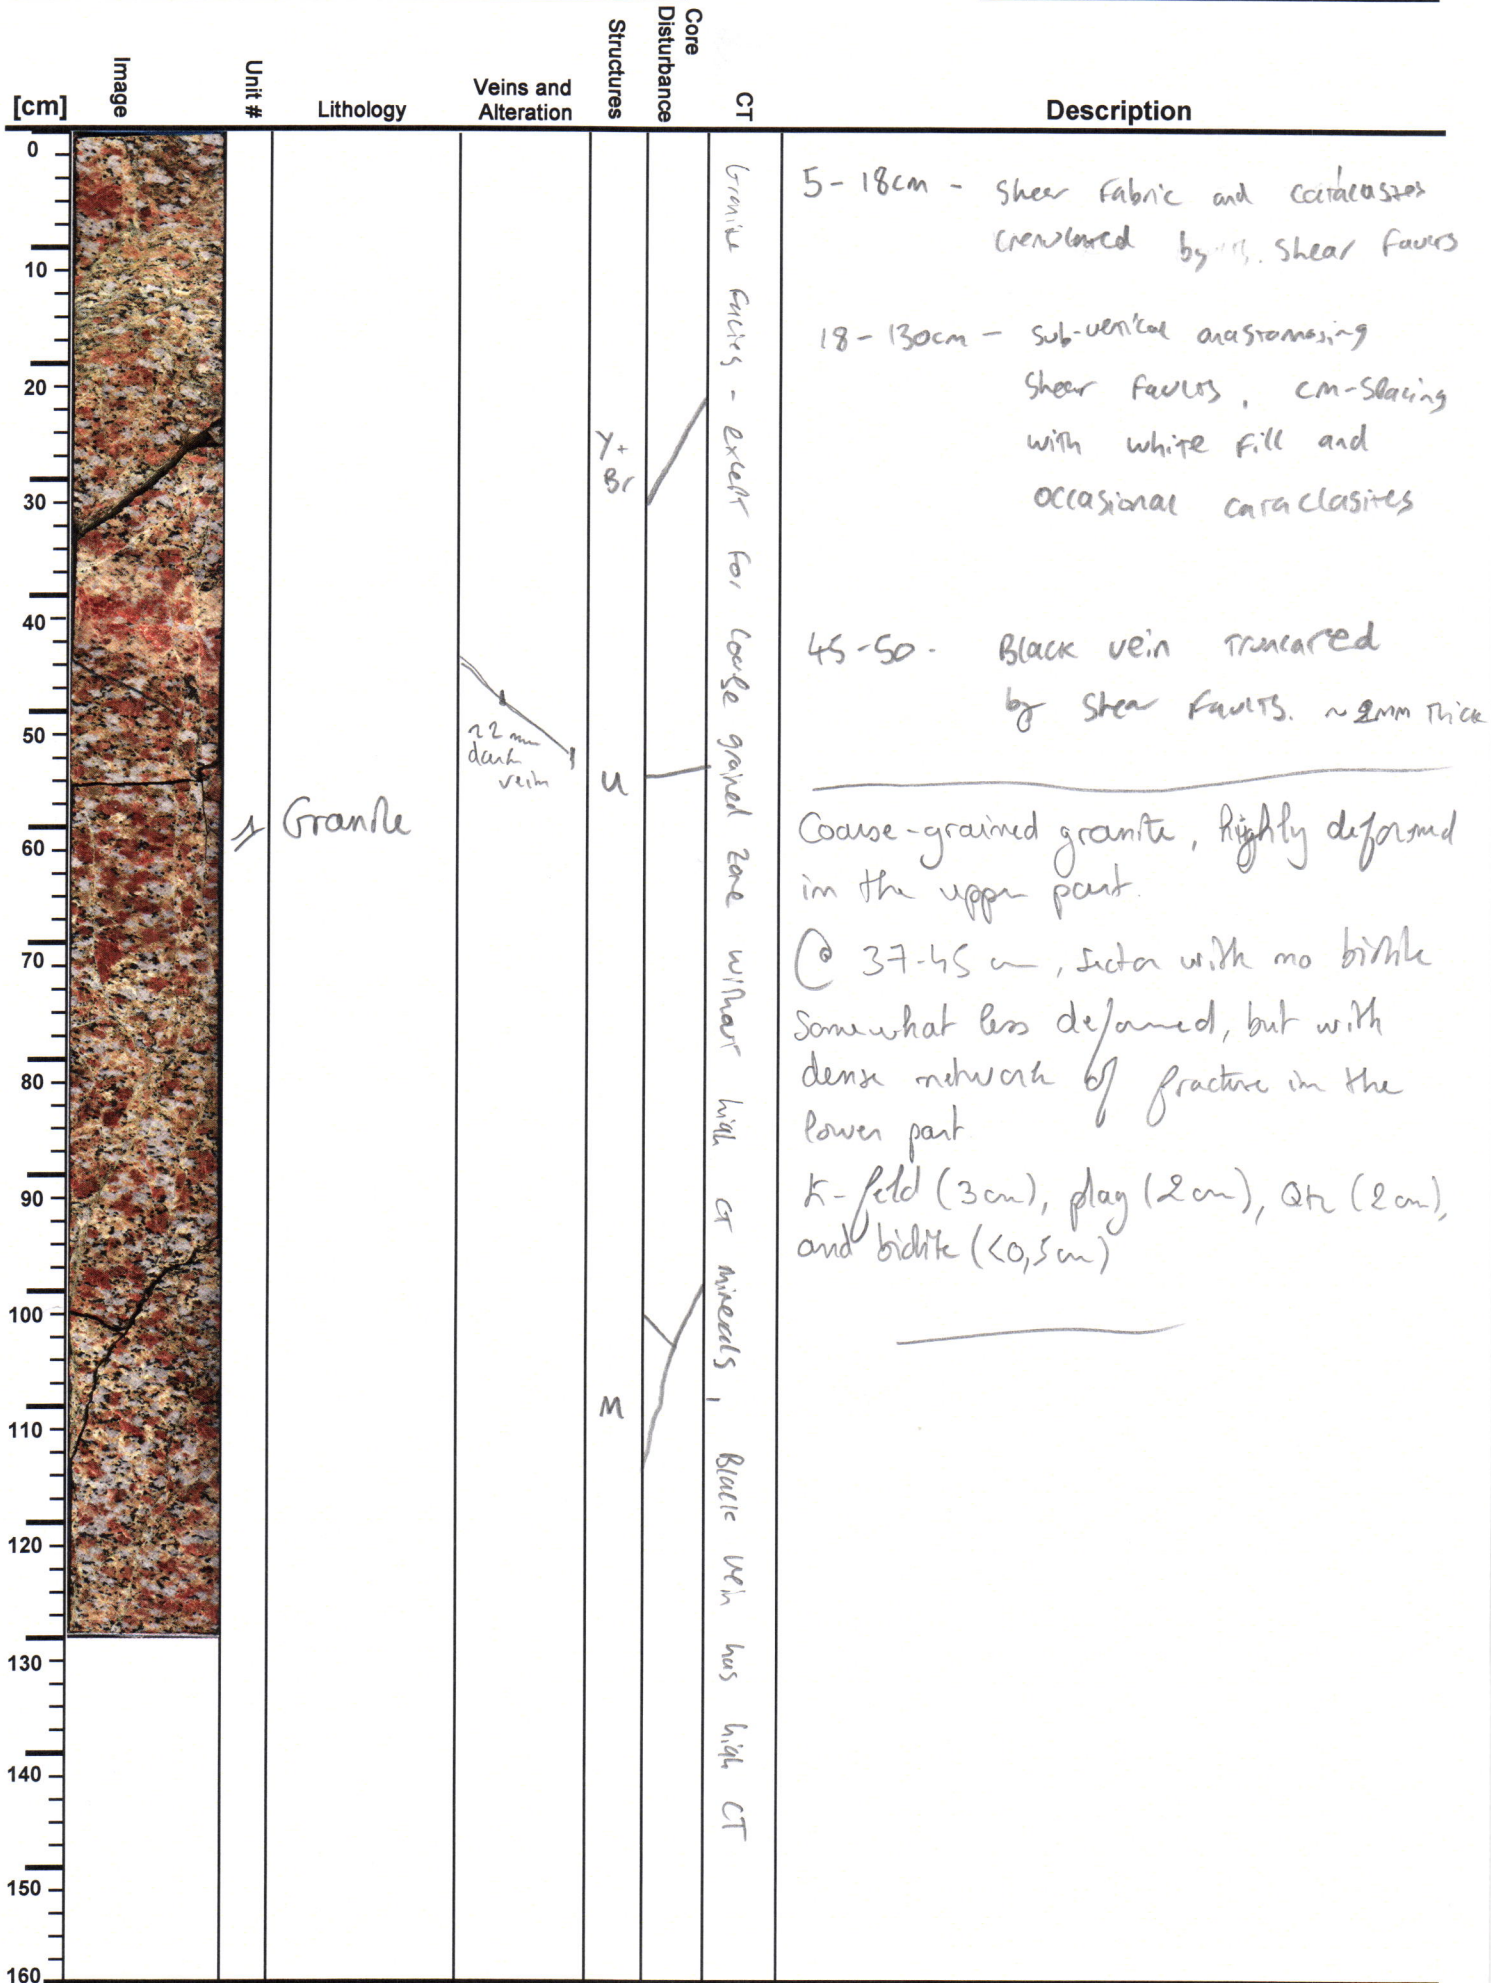 [cm]
Image
Unit #
Lithology
Veins and
Alteration
Structures
Core
Disturbance
CT
Description
0
10
20
30
40
50
60
70
80
90
100
110
120
130
140
150
160
1
Granite
~2 mm
dark
vein
Y+
Br
U
M
Granite Facies - except for coarse grained zone without high CT minerals, Black vein has high CT
5-18cm - Shear Fabric and cataclasites
crenulated by shear faults
18-130cm - Sub-vertical anastomosing
Shear Faults, cm-spacing
with white fill and
occasional cataclasites
45-50. Black vein truncated
by shear Faults. ~2mm thick
Coarse-grained granite, highly deformed
in the upper part.
@ 37-45 cm, sector with no biotite
somewhat less deformed, but with
dense network of fracture in the
lower part
K-feld (3cm), plag (2cm), Qtz (2cm),
and biotite (<0,5cm)